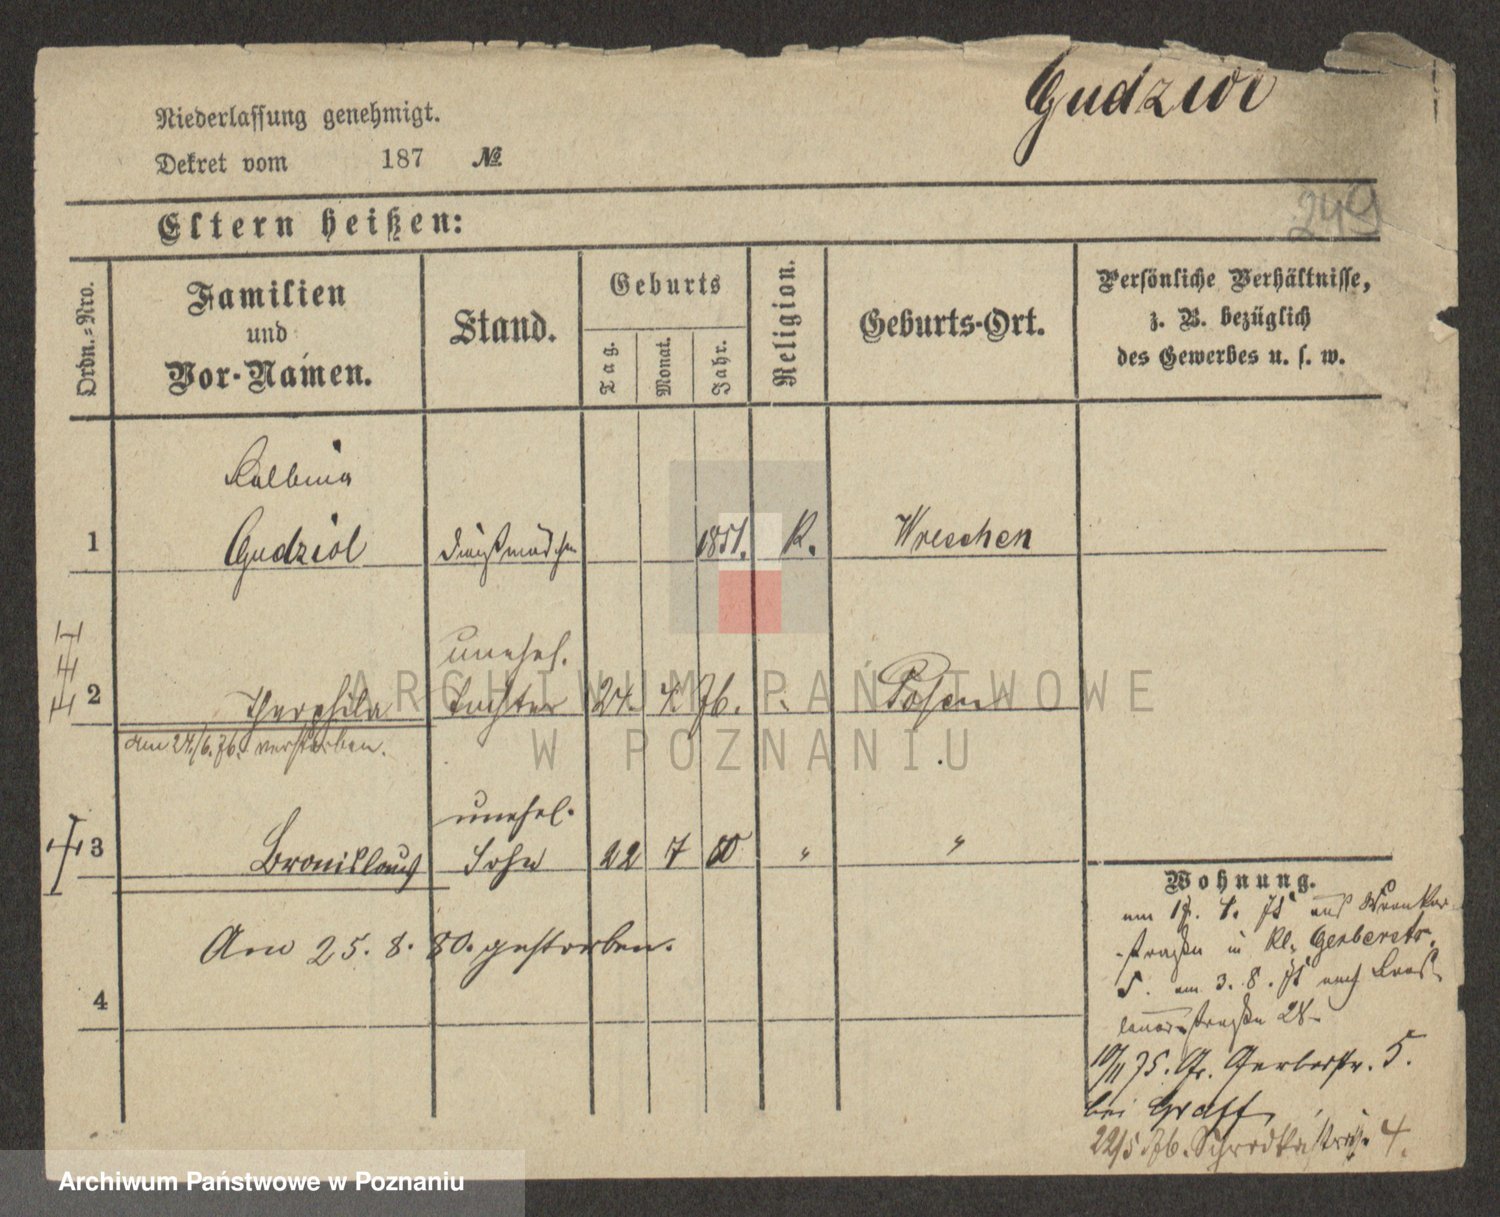 Gudziol
Niederlassung genehmigt.
Dekret vom 187 №
249
Eltern heißen:
Ordn.-Nro.
Familien
und
Vor-Namen.
Stand.
Geburts
Tag.
Monat.
Jahr.
Religion.
Geburts-Ort.
Persönliche Verhältnisse,
z. B. bezüglich
des Gewerbes u. s. w.
Balbina
1 Gudziol Dienstmädchen 1851. K. Wreschen
unehel.
2 Theophila Tochter 24. 4. 76. Posen
am 24./6. 76. verstorben.
unehel.
3 Bronislaus Sohn 22 7 80 " "
Am 25. 8. 80. gestorben.
4
Wohnung.
am 17. 4. 75 aus Wronker-
straße in Kl. Gerberstr.
5. am 3. 8. 75 nach Bres-
lauerstraße 28
19/11 75. Gr. Gerberstr. 5.
bei Graff
22/5 76. Schrodkastraße 4.
ARCHIWUM PAŃSTWOWE
W POZNANIU
Archiwum Państwowe w Poznaniu